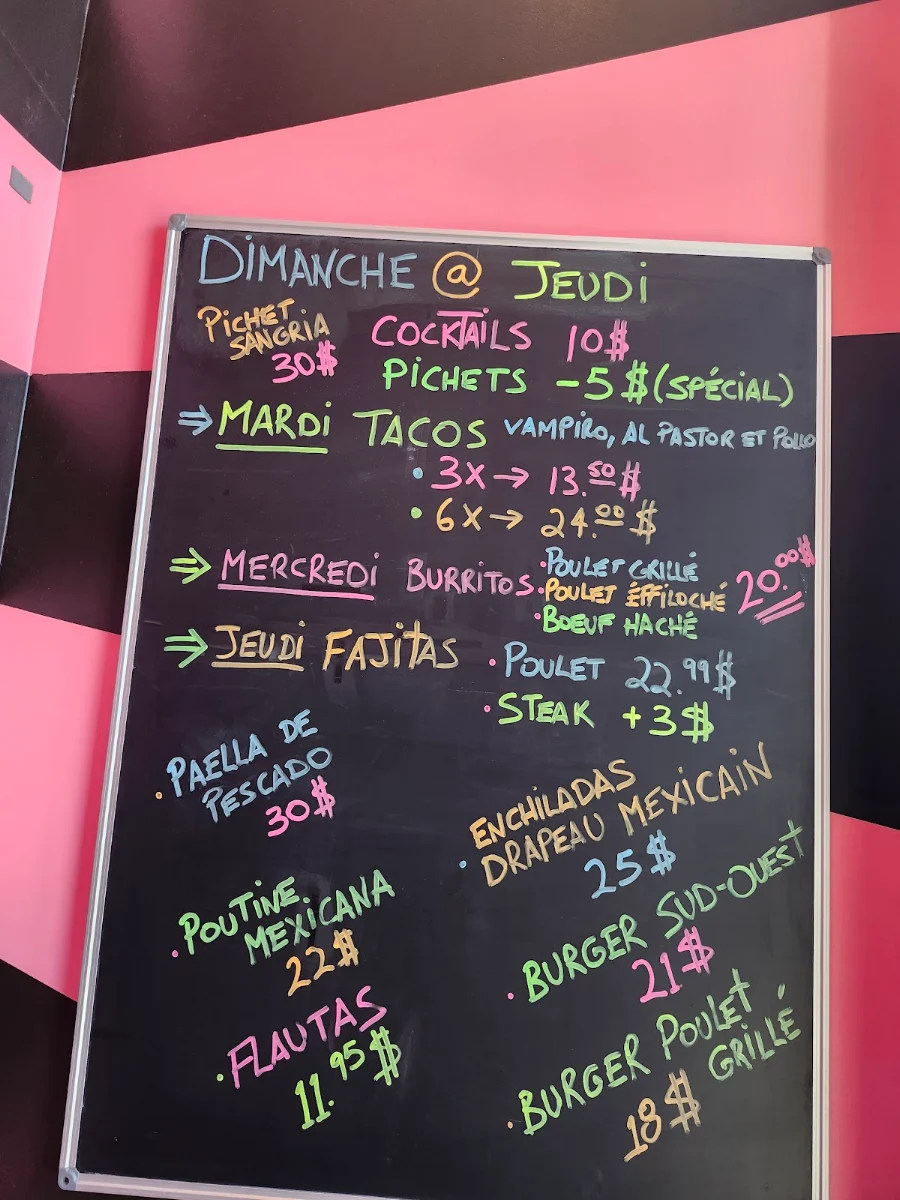 DIMANCHE @ JEUDI
PICHET
SANGRIA
30$
COCKTAILS 10$
PICHETS -5$ (SPÉCIAL)
⇒ MARDI TACOS VAMPIRO, AL PASTOR ET POLLO
• 3X → 13.50$
• 6X → 24.00$
⇒ MERCREDI BURRITOS
• POULET GRILLÉ
• POULET ÉFFILOCHÉ
• BOEUF HACHÉ
20.00$
⇒ JEUDI FAJITAS
• POULET 22.99$
• STEAK +3$
• PAELLA DE
PESCADO
30$
• ENCHILADAS
DRAPEAU MEXICAIN
25$
• POUTINE
MEXICANA
22$
• BURGER SUD-OUEST
21$
• FLAUTAS
11.95$
• BURGER POULET
GRILLÉ
18$